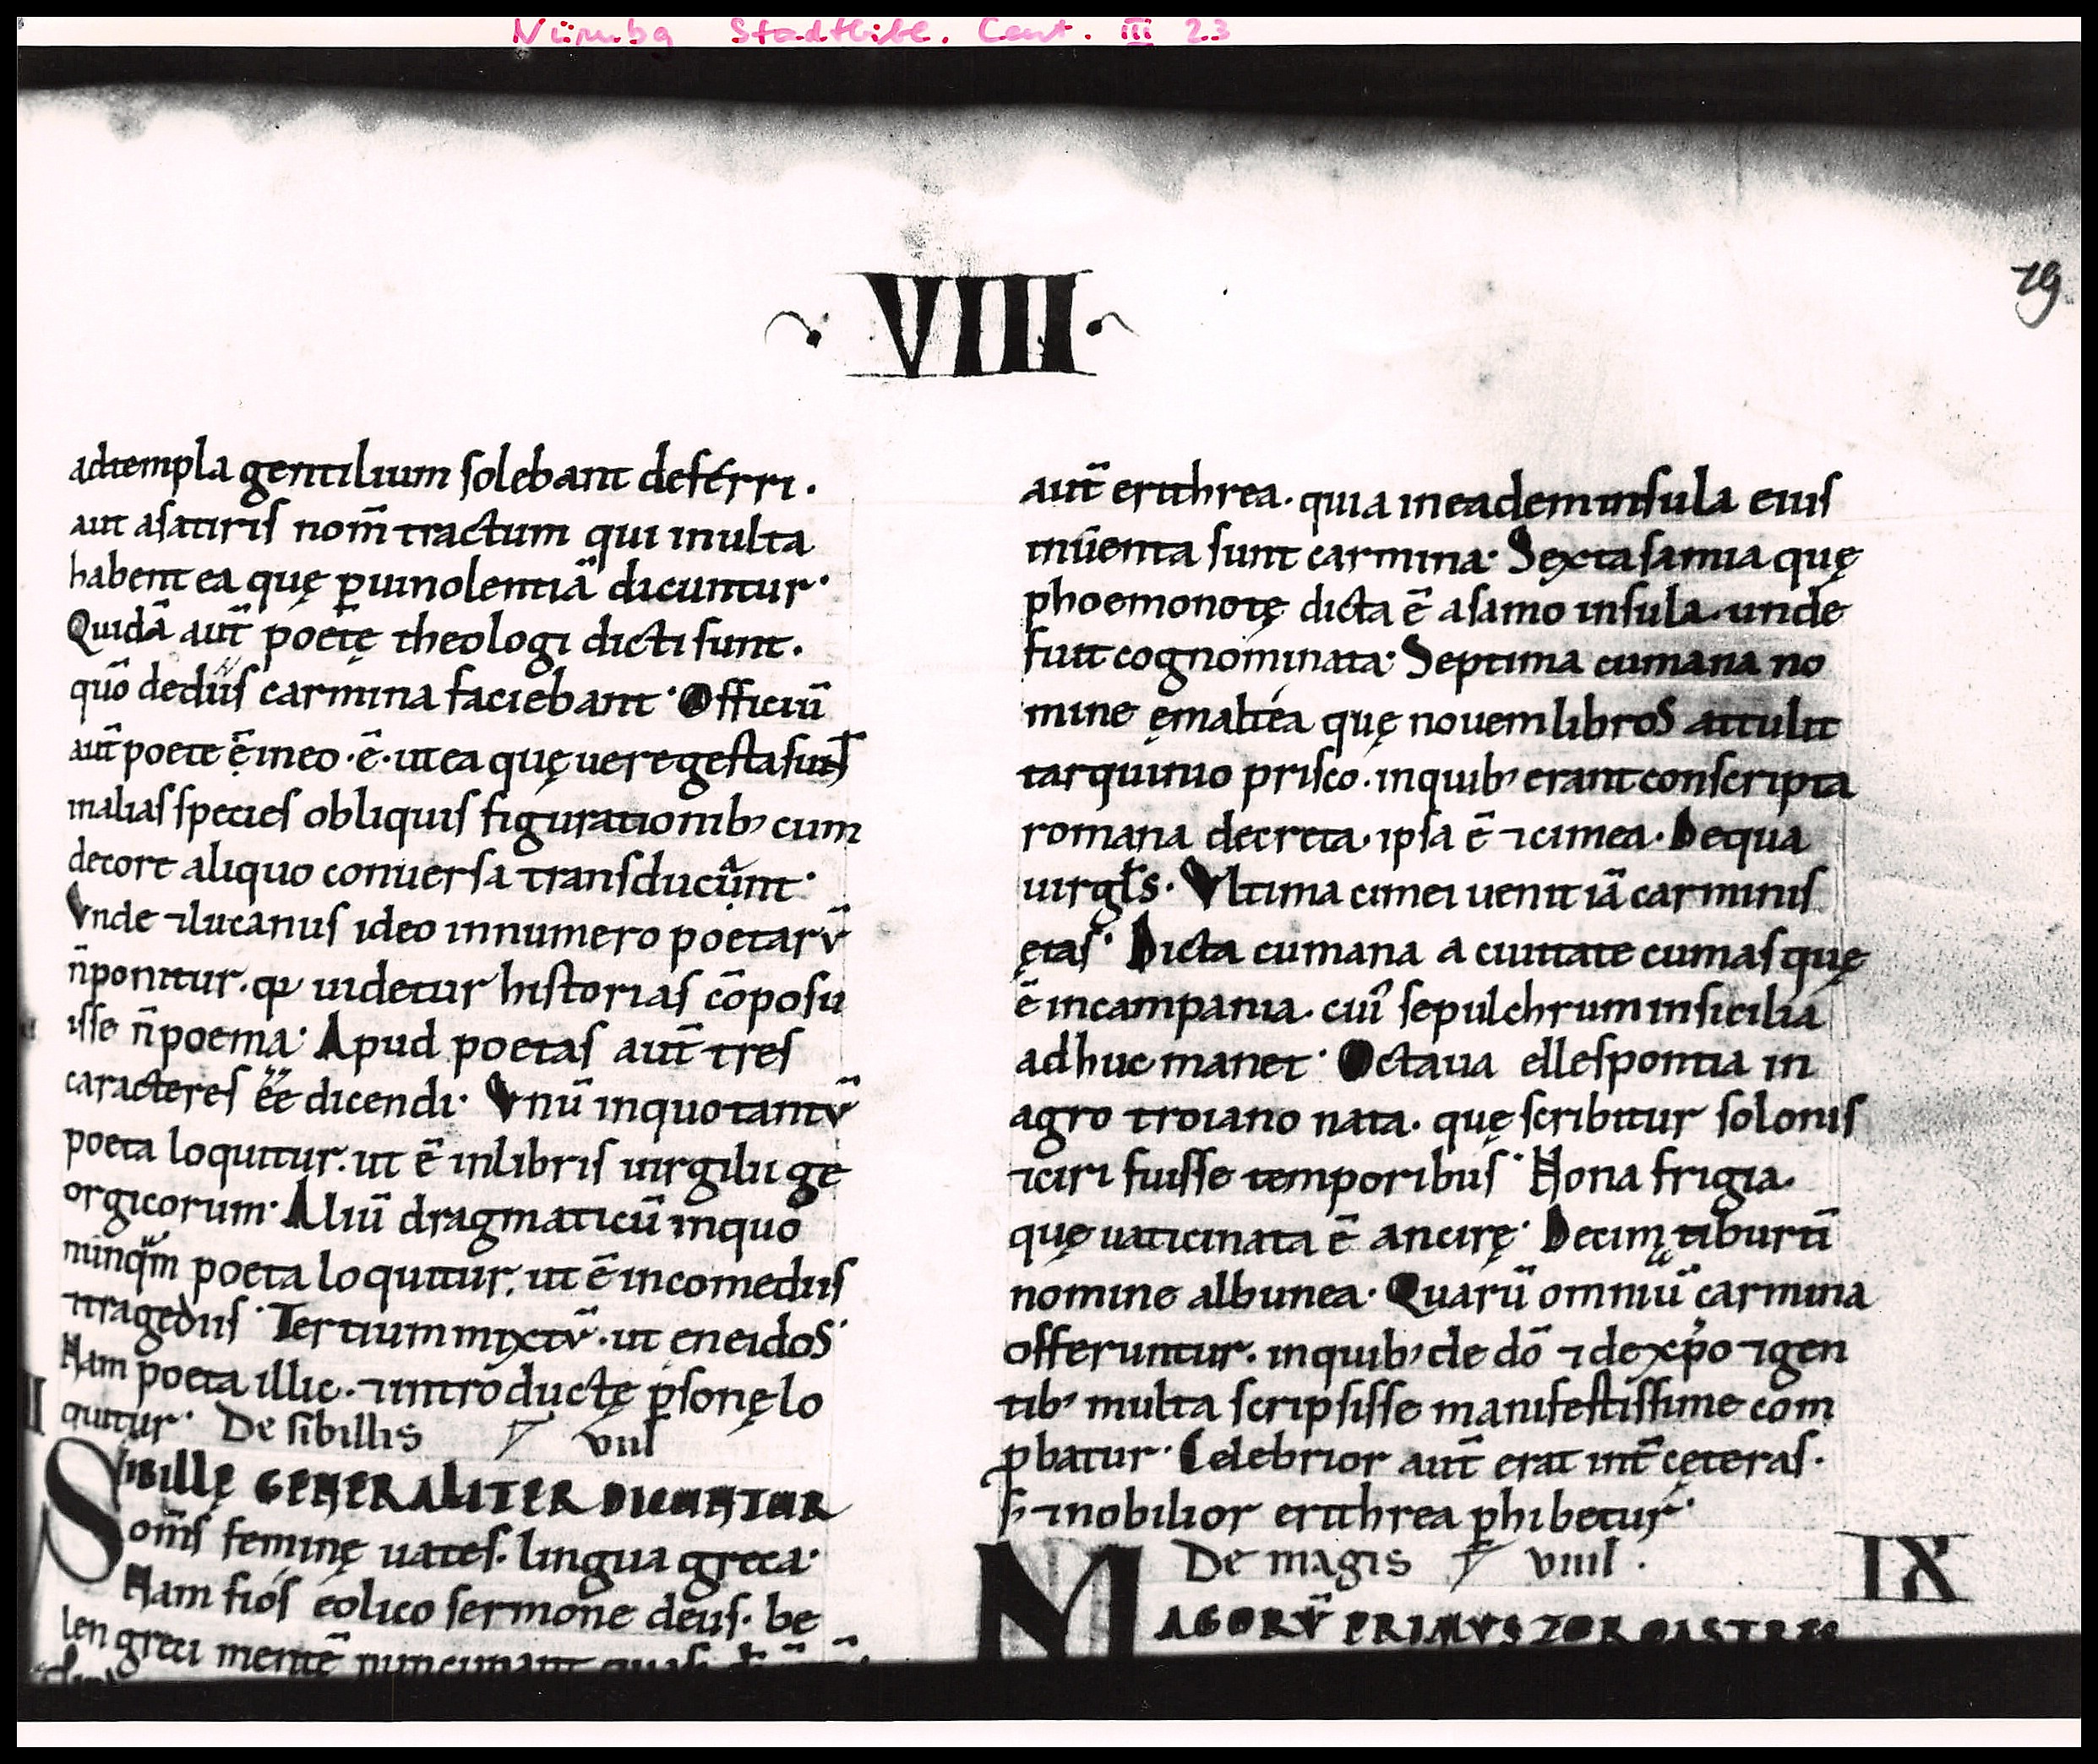 Nürnbg Stadtbibl. Cent. III 23
VIII
79
adtempla gentilium solebant deferri.
aut asatiris nom̄ tractum qui inulta
habent ea quę ꝑuinolentiā dicuntur·
Quidā aut̄ poetę theologi dicti sunt.
quō dediis carmina faciebant· Officiū
aut̄ poete ē ineo·ē·ut ea quę uere gesta sunt
inalias species obliquis figurationib; cum
decore aliquo conuersa transducunt·
Vnde ⁊lucanus ideo innumero poetarū
n̄ponitur. qꝛ uidetur historias cōposu
isse n̄poema· Apud poetas aut̄ tres
caracteres ēē dicendi· Vnū inquo tantū
poeta loquitur. ut ē inlibris uirgilii ge
orgicorum· Aliū dragmaticū inquo
nunq̄m poeta loquitur. ut ē incomediis
⁊tragediis· Tertium mixtū·ut eneidos·
Nam poeta illic·⁊introductę ꝑsonę lo
quitur· De sibillis VIII
SIBILLĘ GENERALITER DICUNTUR
om̄s feminę uates. lingua greca·
Nam sios eolico sermone deus. be
len greci mentē nuncupant quasi
aut̄ erithrea. quia ineadem insula eius
inuenta sunt carmina· Sexta samia quę
phoemonotę dicta ē asamo insula. unde
fuit cognominata· Septima cumana no
mine ęmaltea quę nouem libros attulit
tarquinio prisco. inquib; erant conscripta
romana decreta. ipsa ē ⁊cimea. Dequa
uirgłs. Vltima cimei uenit iā carminis
ętas· Dicta cumana a ciuitate cumas quę
ē incampania. cuiꝰ sepulchrum insicilia
adhuc manet· Octaua ellespontia in
agro troiano nata. quę scribitur solonis
⁊ciri fuisse temporibus· Nona frigia.
quę uaticinata ē ancirę· Decima tiburtī
nomine albunea. Quarū omniū carmina
offeruntur. inquib; de dō ⁊ de xp̄o ⁊gen
tib; multa scripsisse manifestissime com
ꝓbatur· Celebrior aut̄ erat int̄ cęteras.
⁊nobilior erithrea ꝑhibetur·
De magis VIIII.
IX
MAGORŪ PRIMVS ZOROASTRES